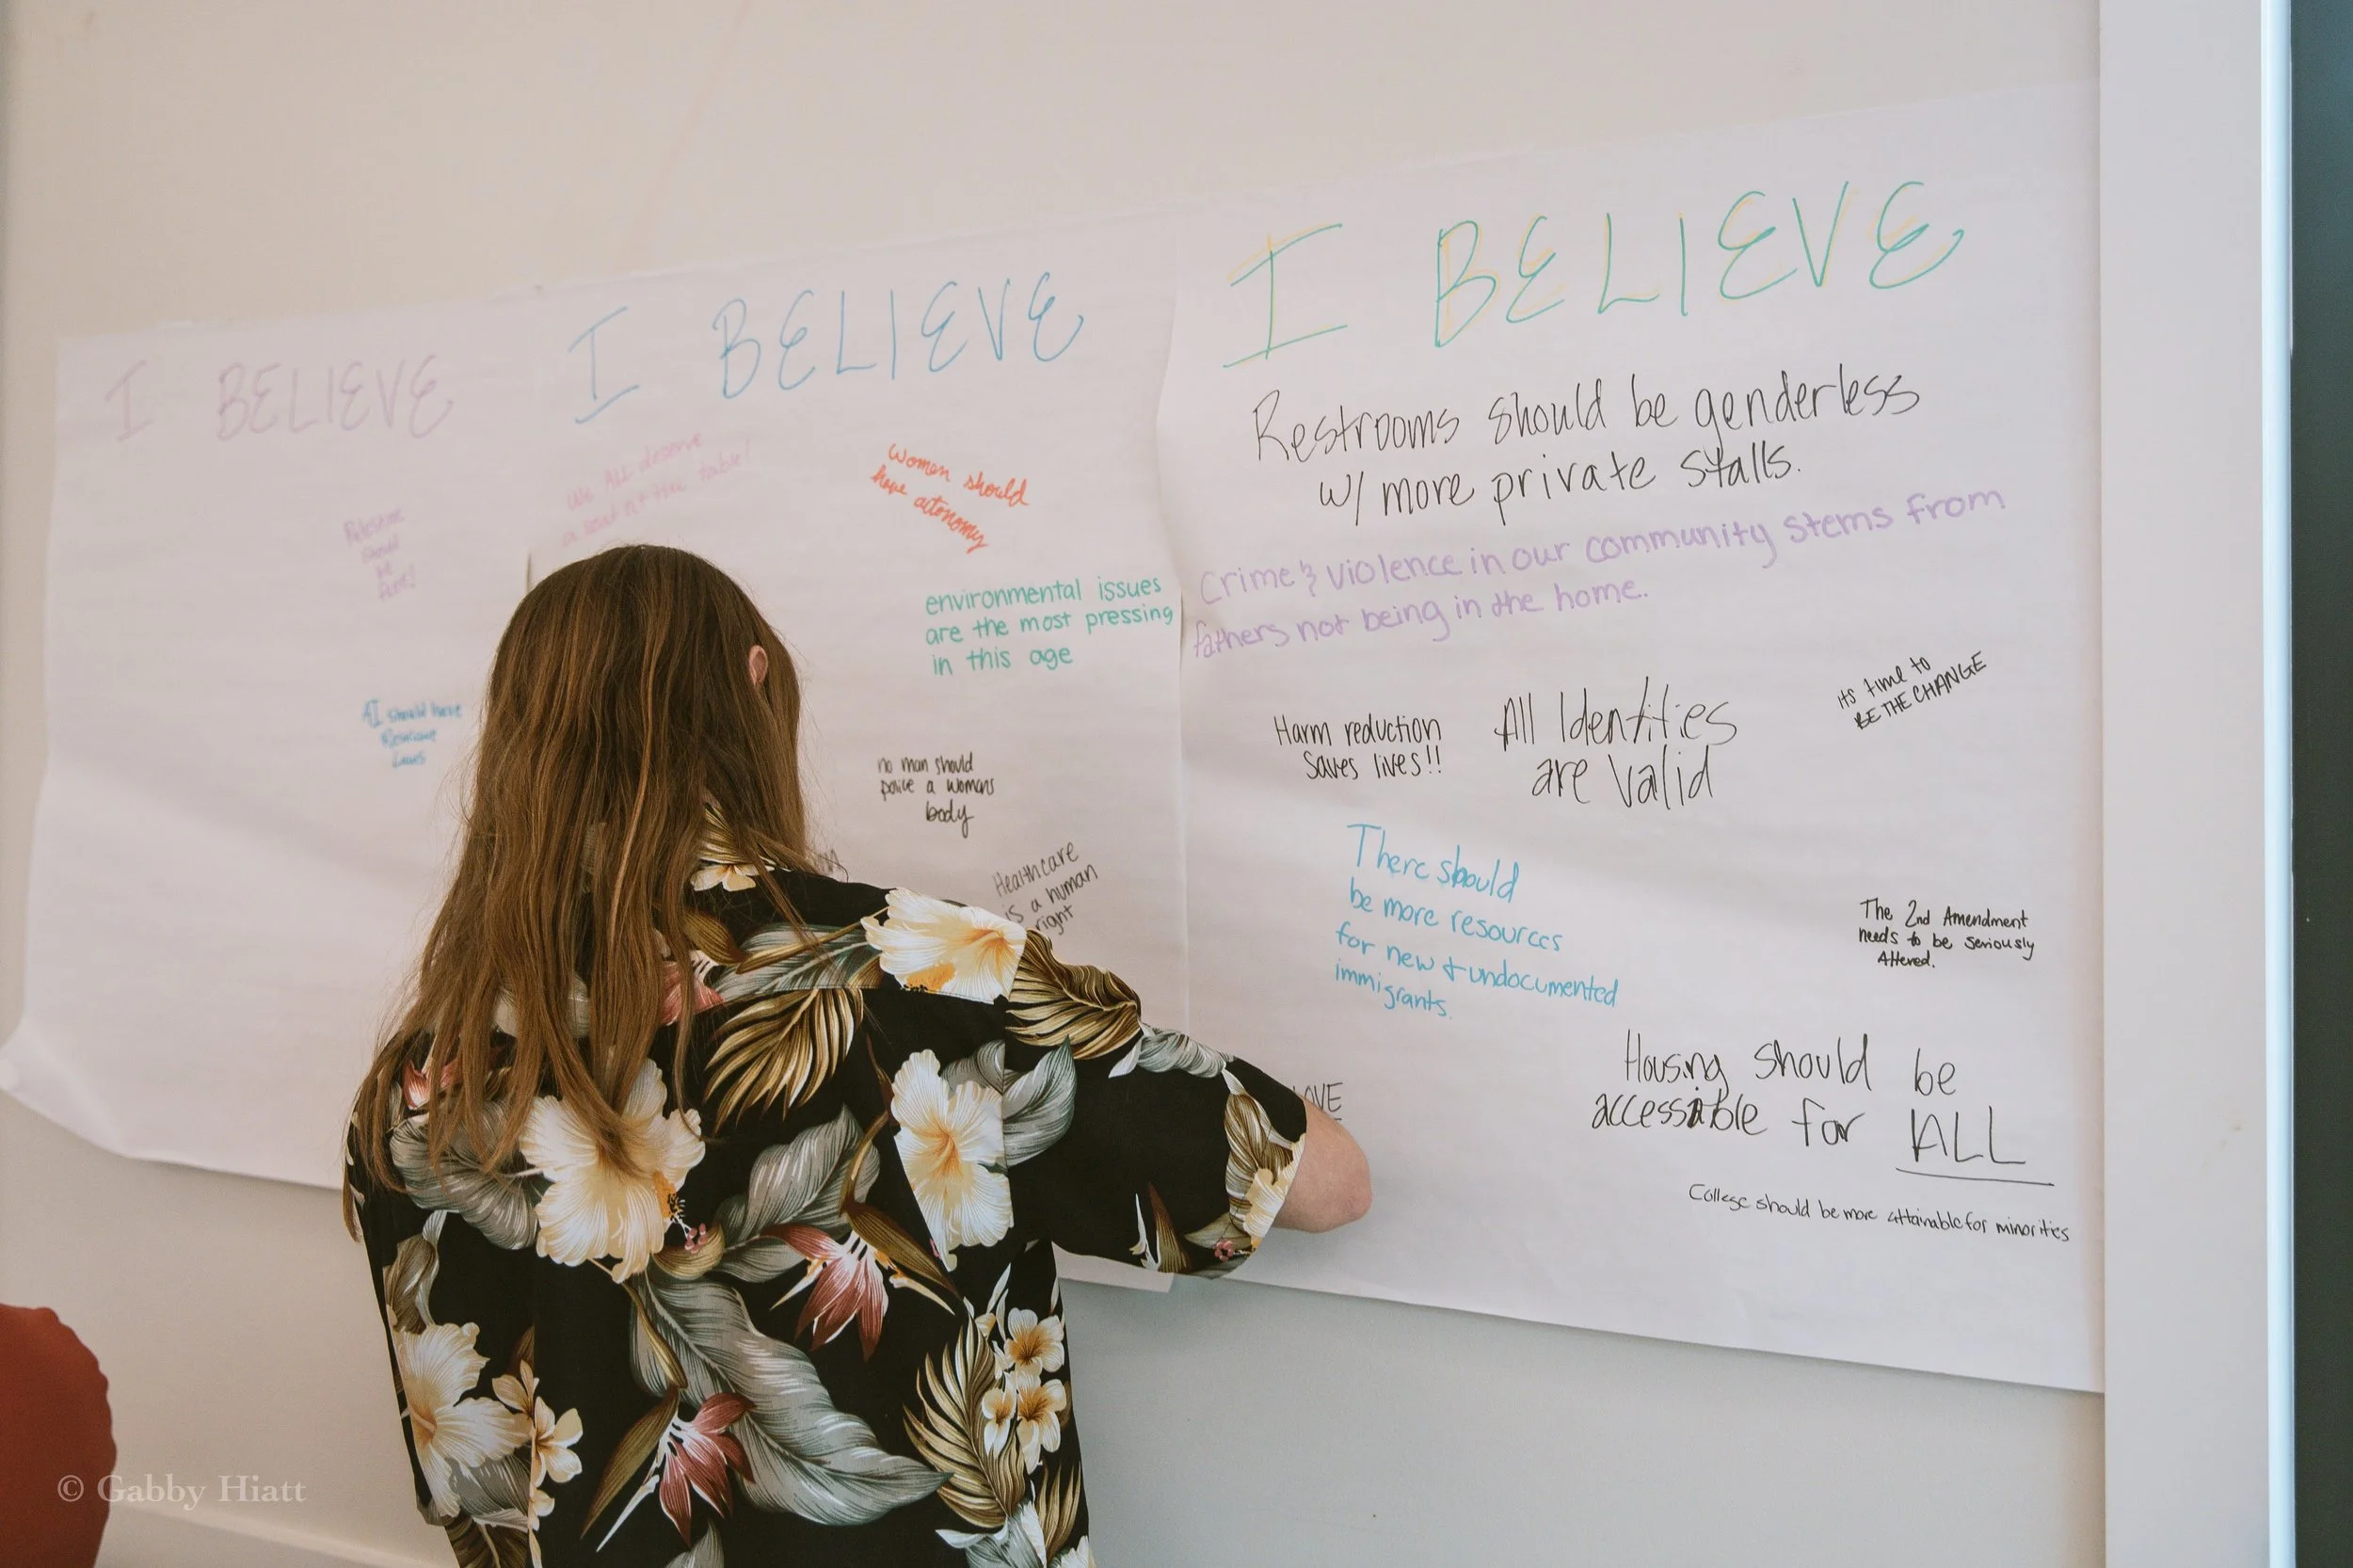 I BELIEVE
Palestine
should
be
free!
AI should have
Restrictive
Laws
I BELIEVE
we ALL deserve
a seat at the table!
Women should
have autonomy
environmental issues
are the most pressing
in this age
no man should
police a womans
body
Healthcare
is a human
right
I BELIEVE
Restrooms should be genderless
w/ more private stalls.
Crime & violence in our community stems from
fathers not being in the home.
Harm reduction
Saves lives!!
All Identities
are valid
its time to
BE THE CHANGE
There should
be more resources
for new & undocumented
immigrants.
The 2nd Amendment
needs to be seriously
Altered.
Housing should be
accessible for ALL
College should be more attainable for minorities
© Gabby Hiatt